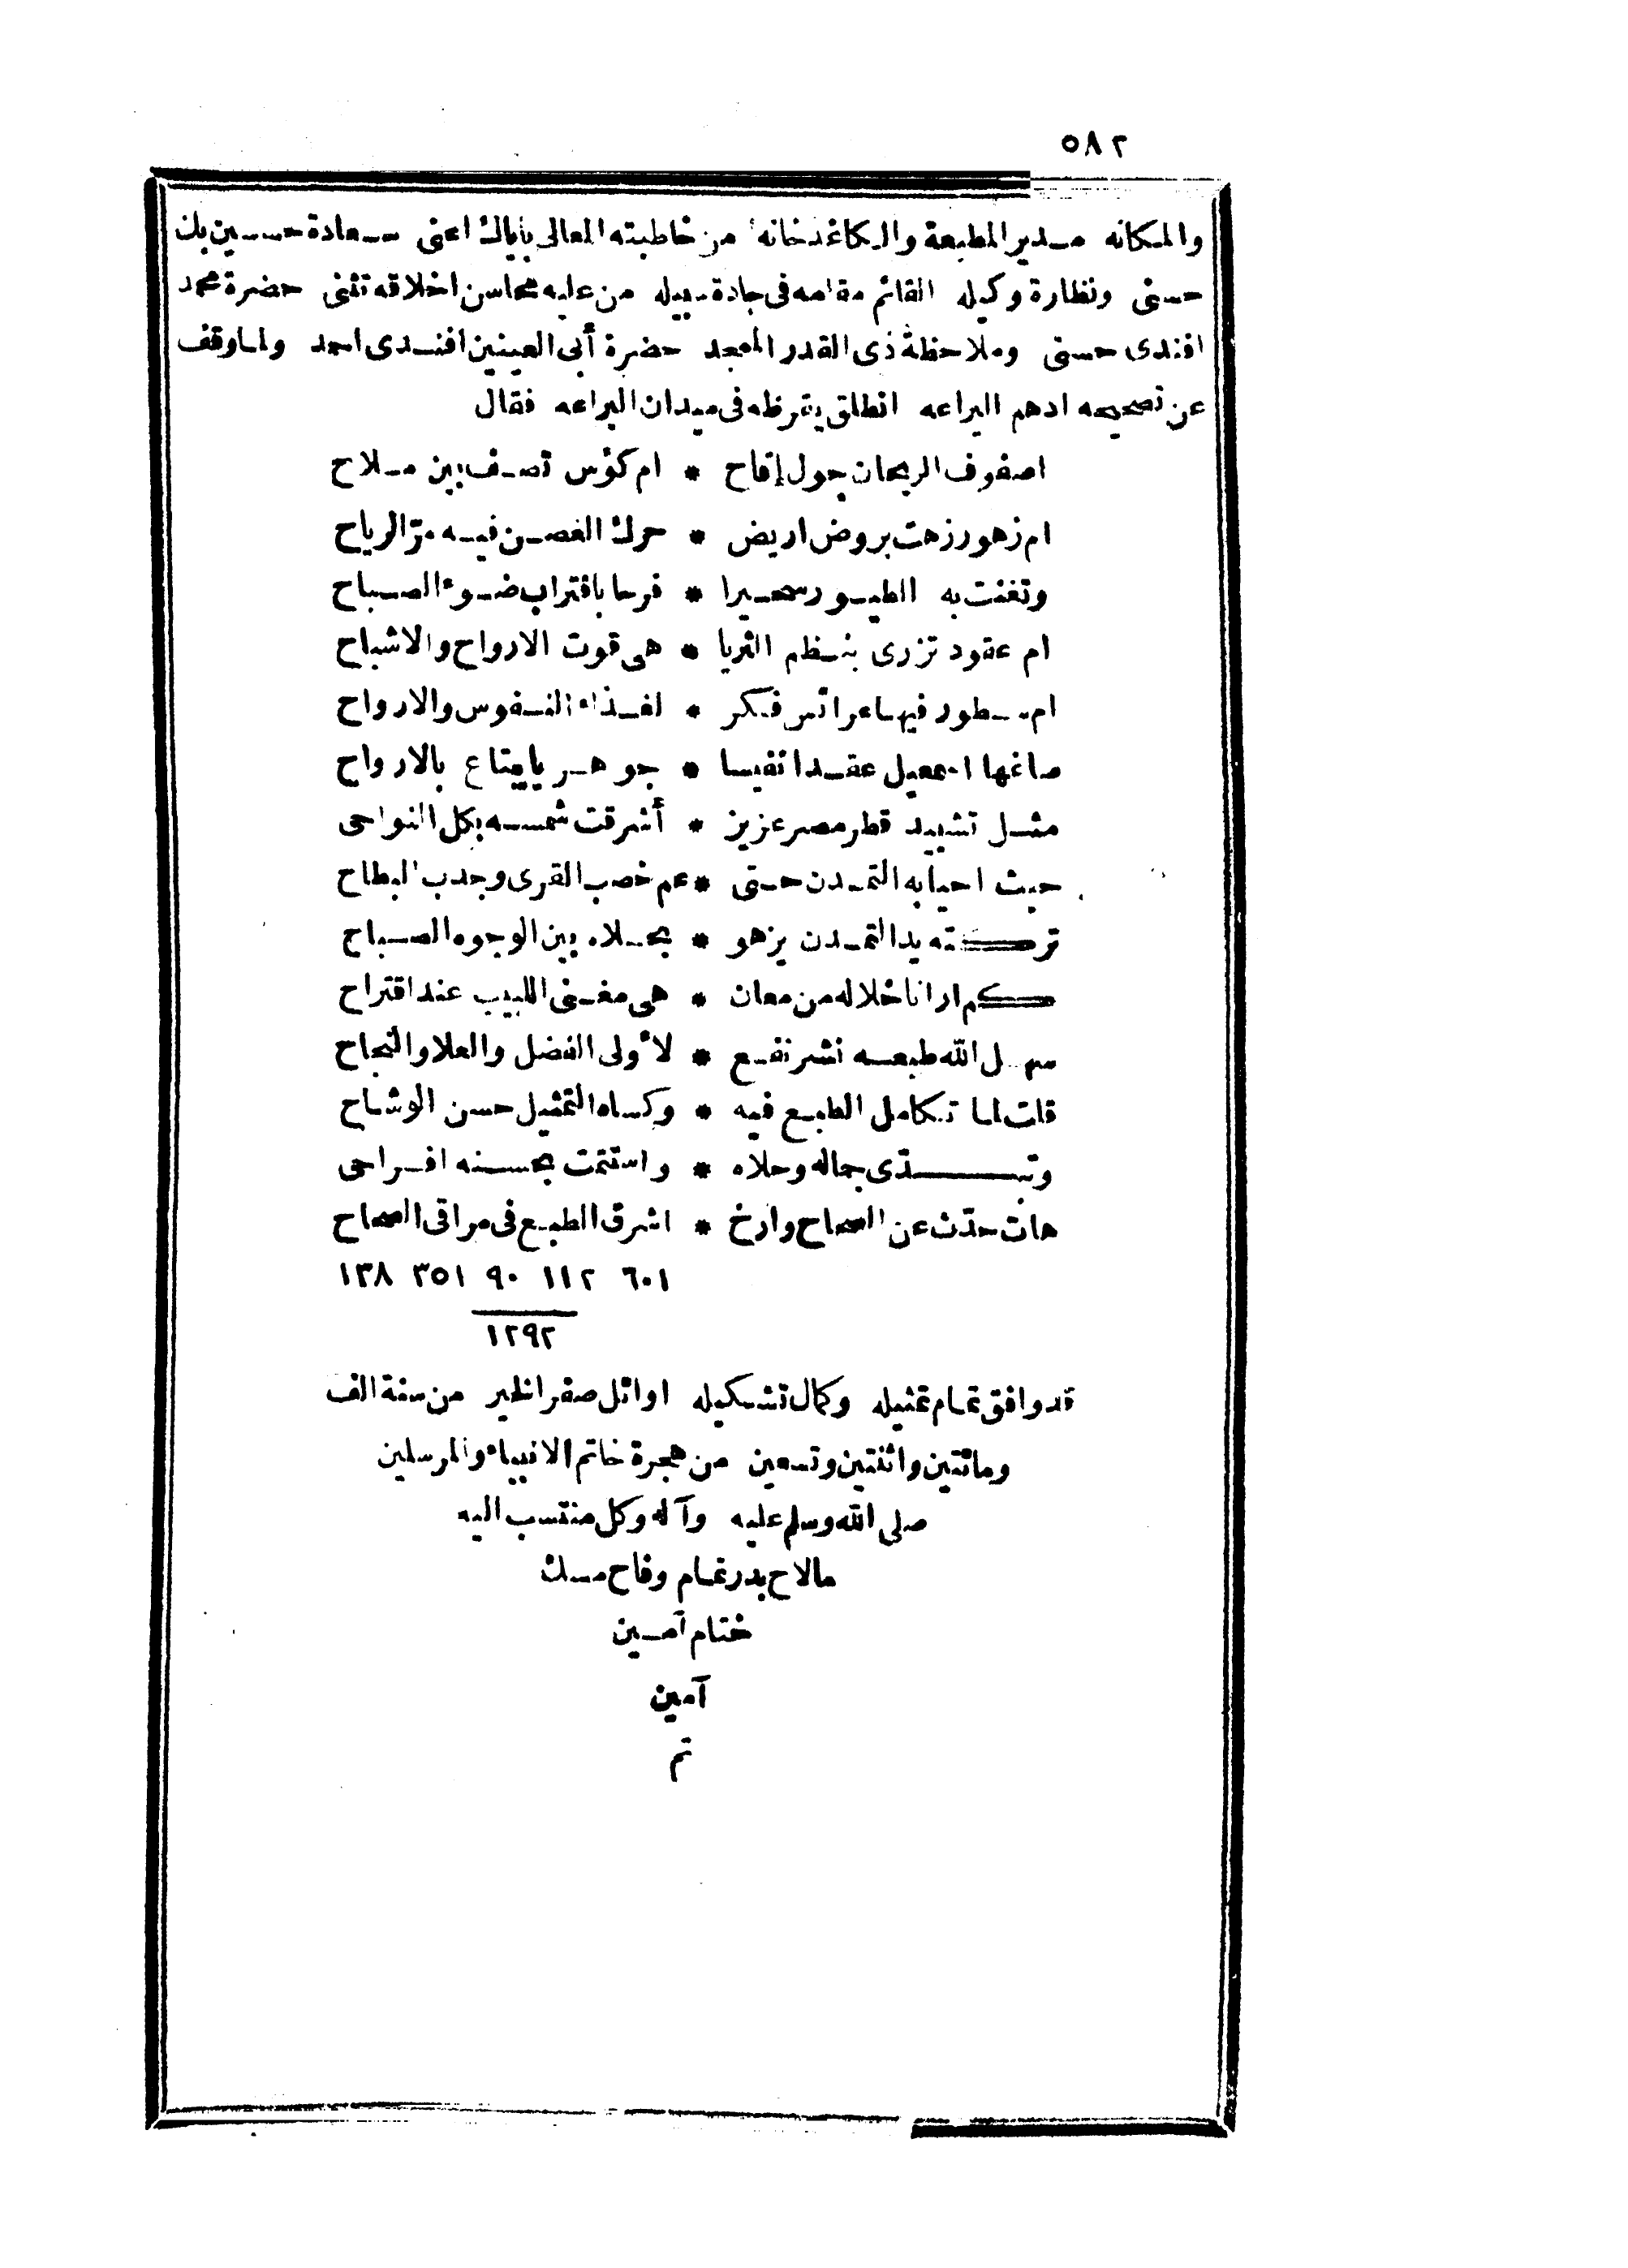 ٥٨٢
والمكانه مدير المطبعة والكاغدخانه من خاطبته المعالى باياك اعنى سعادة حسين بك
حسنى ونظارة وكيله القائم مقامه فى جادة سبيله من عليه محاسن اخلاقه تثنى حضرة محمد
افندى حسنى وملاحظة ذى القدر الممجد حضرة أبى العينين افندى احمد ولما وقف
عن تصحيحه ادهم اليراعه انطلق يقرظه فى ميدان البراعه فقال
اصفوف الريحان حول إقاح * ام كؤس تصف بين ملاح
ام زهور زهت بروض اريض * حرك الغصن فيه مرّ الرياح
وتغنت به الطيور سحيرا * فرحا باقتراب ضوء الصباح
ام عقود تزرى بنظم الثريا * هى قوت الارواح والاشباح
ام سطور فيها عرائس فكر * لغذاء النفوس والارواح
صاغها اسمعيل عقدا نفيسا * جوهريا يبتاع بالارواح
مثل تشييد قطر مصر عزيز * أشرقت شمسه بكل النواحى
حيث احيا به التمدن حتى * عم خصب القرى وجدب البطاح
تركته يد التمدن يزهو * بحلاه بين الوجوه الصباح
كم ارانا خلاله من معان * هى مغنى اللبيب عند اقتراح
سهل الله طبعه نشر نفع * لأولى الفضل والعلا والنجاح
قلت لما تكامل الطبع فيه * وكساه التمثيل حسن الوشاح
وتبدّى جماله وحلاه * واستتمت بحسنه افراحى
هات حدّث عن الصحاح وارخ * اشرق الطبع فى مراقى الصحاح
٦٠١ ١١٢ ٩٠ ٣٥١ ١٣٨
١٢٩٢
قد وافق تمام تمثيله وكمال تشكيله اوائل صفر الخير من سنة الف
ومائتين واثنتين وتسعين من هجرة خاتم الانبياء والمرسلين
صلى الله وسلم عليه وآله وكل منتسب اليه
مالاح بدر تمام وفاح مسك
ختام آمين
آمين
تم